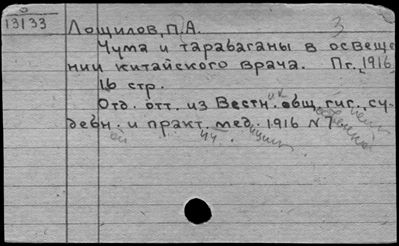 13133
Лощилов, П.А.
3
Чума и тарабаганы в освеще
нии китайского врача. Пг., 1916
16 стр.
Отд. отт. из Вестн. общ. гиг., су-
дебн. и практ. мед. 1916 N 7